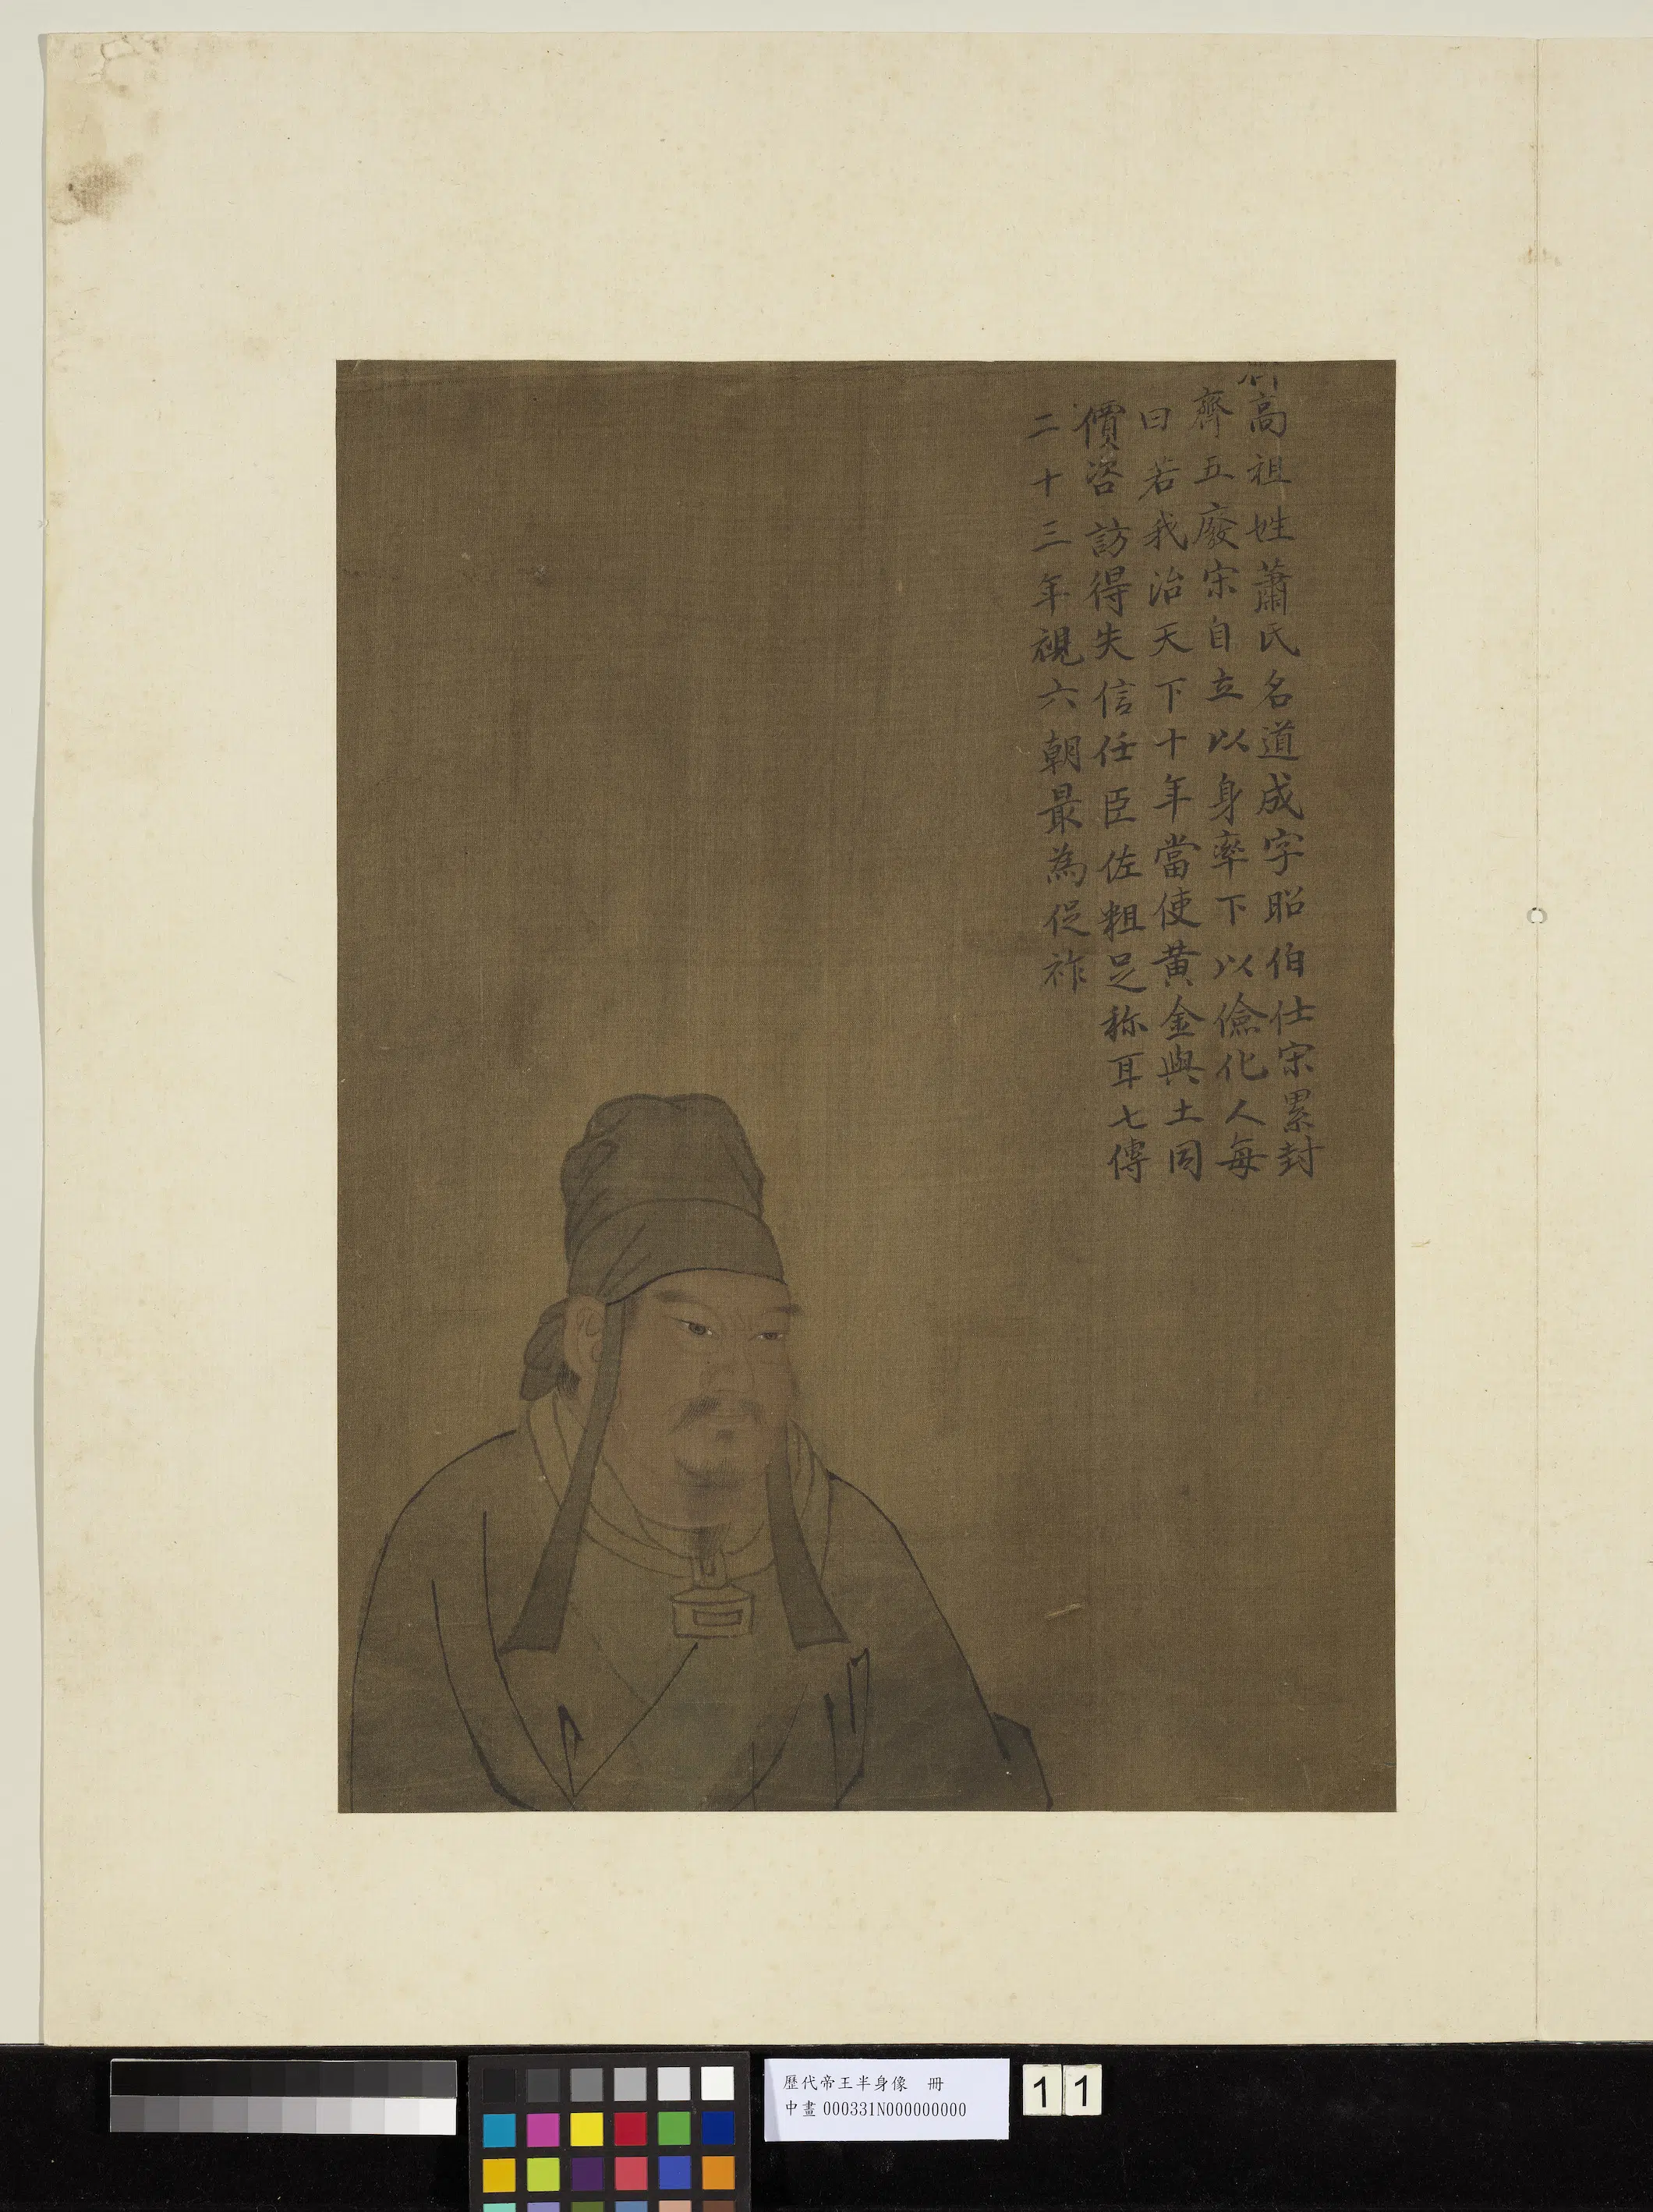 高祖姓蕭氏名道成字昭伯仕宋累封
齊五廢宋自立以身率下以儉化人每
曰若我治天下十年當使黃金與土同
價咨訪得失信任臣佐粗足称耳七傳
二十三年視六朝最為促祚
歷代帝王半身像 冊
中畫 000331N000000000
11